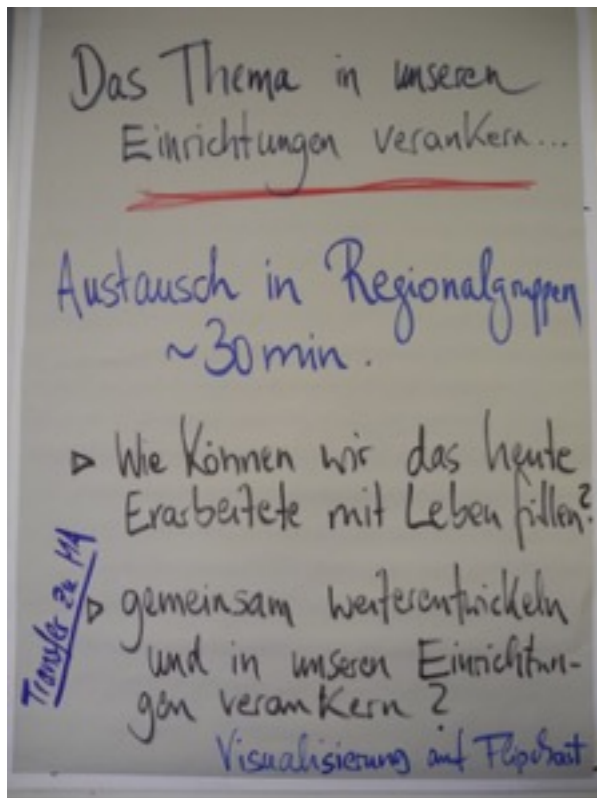 Das Thema in unseren
Einrichtungen verankern...
Austausch in Regionalgruppen
~30min.
▷ Wie können wir das heute
Erarbeitete mit Leben füllen?
Transfer zu MA
▷ gemeinsam weiterentwickeln
und in unseren Einrichtun-
gen verankern?
Visualisierung auf Flipchart.